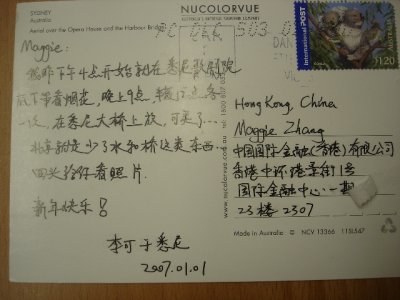 SYDNEY
Australia
Aerial over the Opera House and the Harbour Bridge
NUCOLORVUE
Maggie:
我昨下午4点开始就在悉尼歌剧院
底下等看烟花,晚上9点、半夜12点各
一次,在悉尼大桥上放,可美了…
北京就是少了水和桥这类东西
回头给你看照片.
新年快乐!
李可于悉尼
2007.01.01
www.nucolorvue.com.au
International POST
Australia
$1.20
Hong Kong, China
Maggie Zhang
中国国际金融(香港)有限公司
香港中环港景街1号
国际金融中心一期
23楼 2307
Made in Australia
NCV 13366
115L547